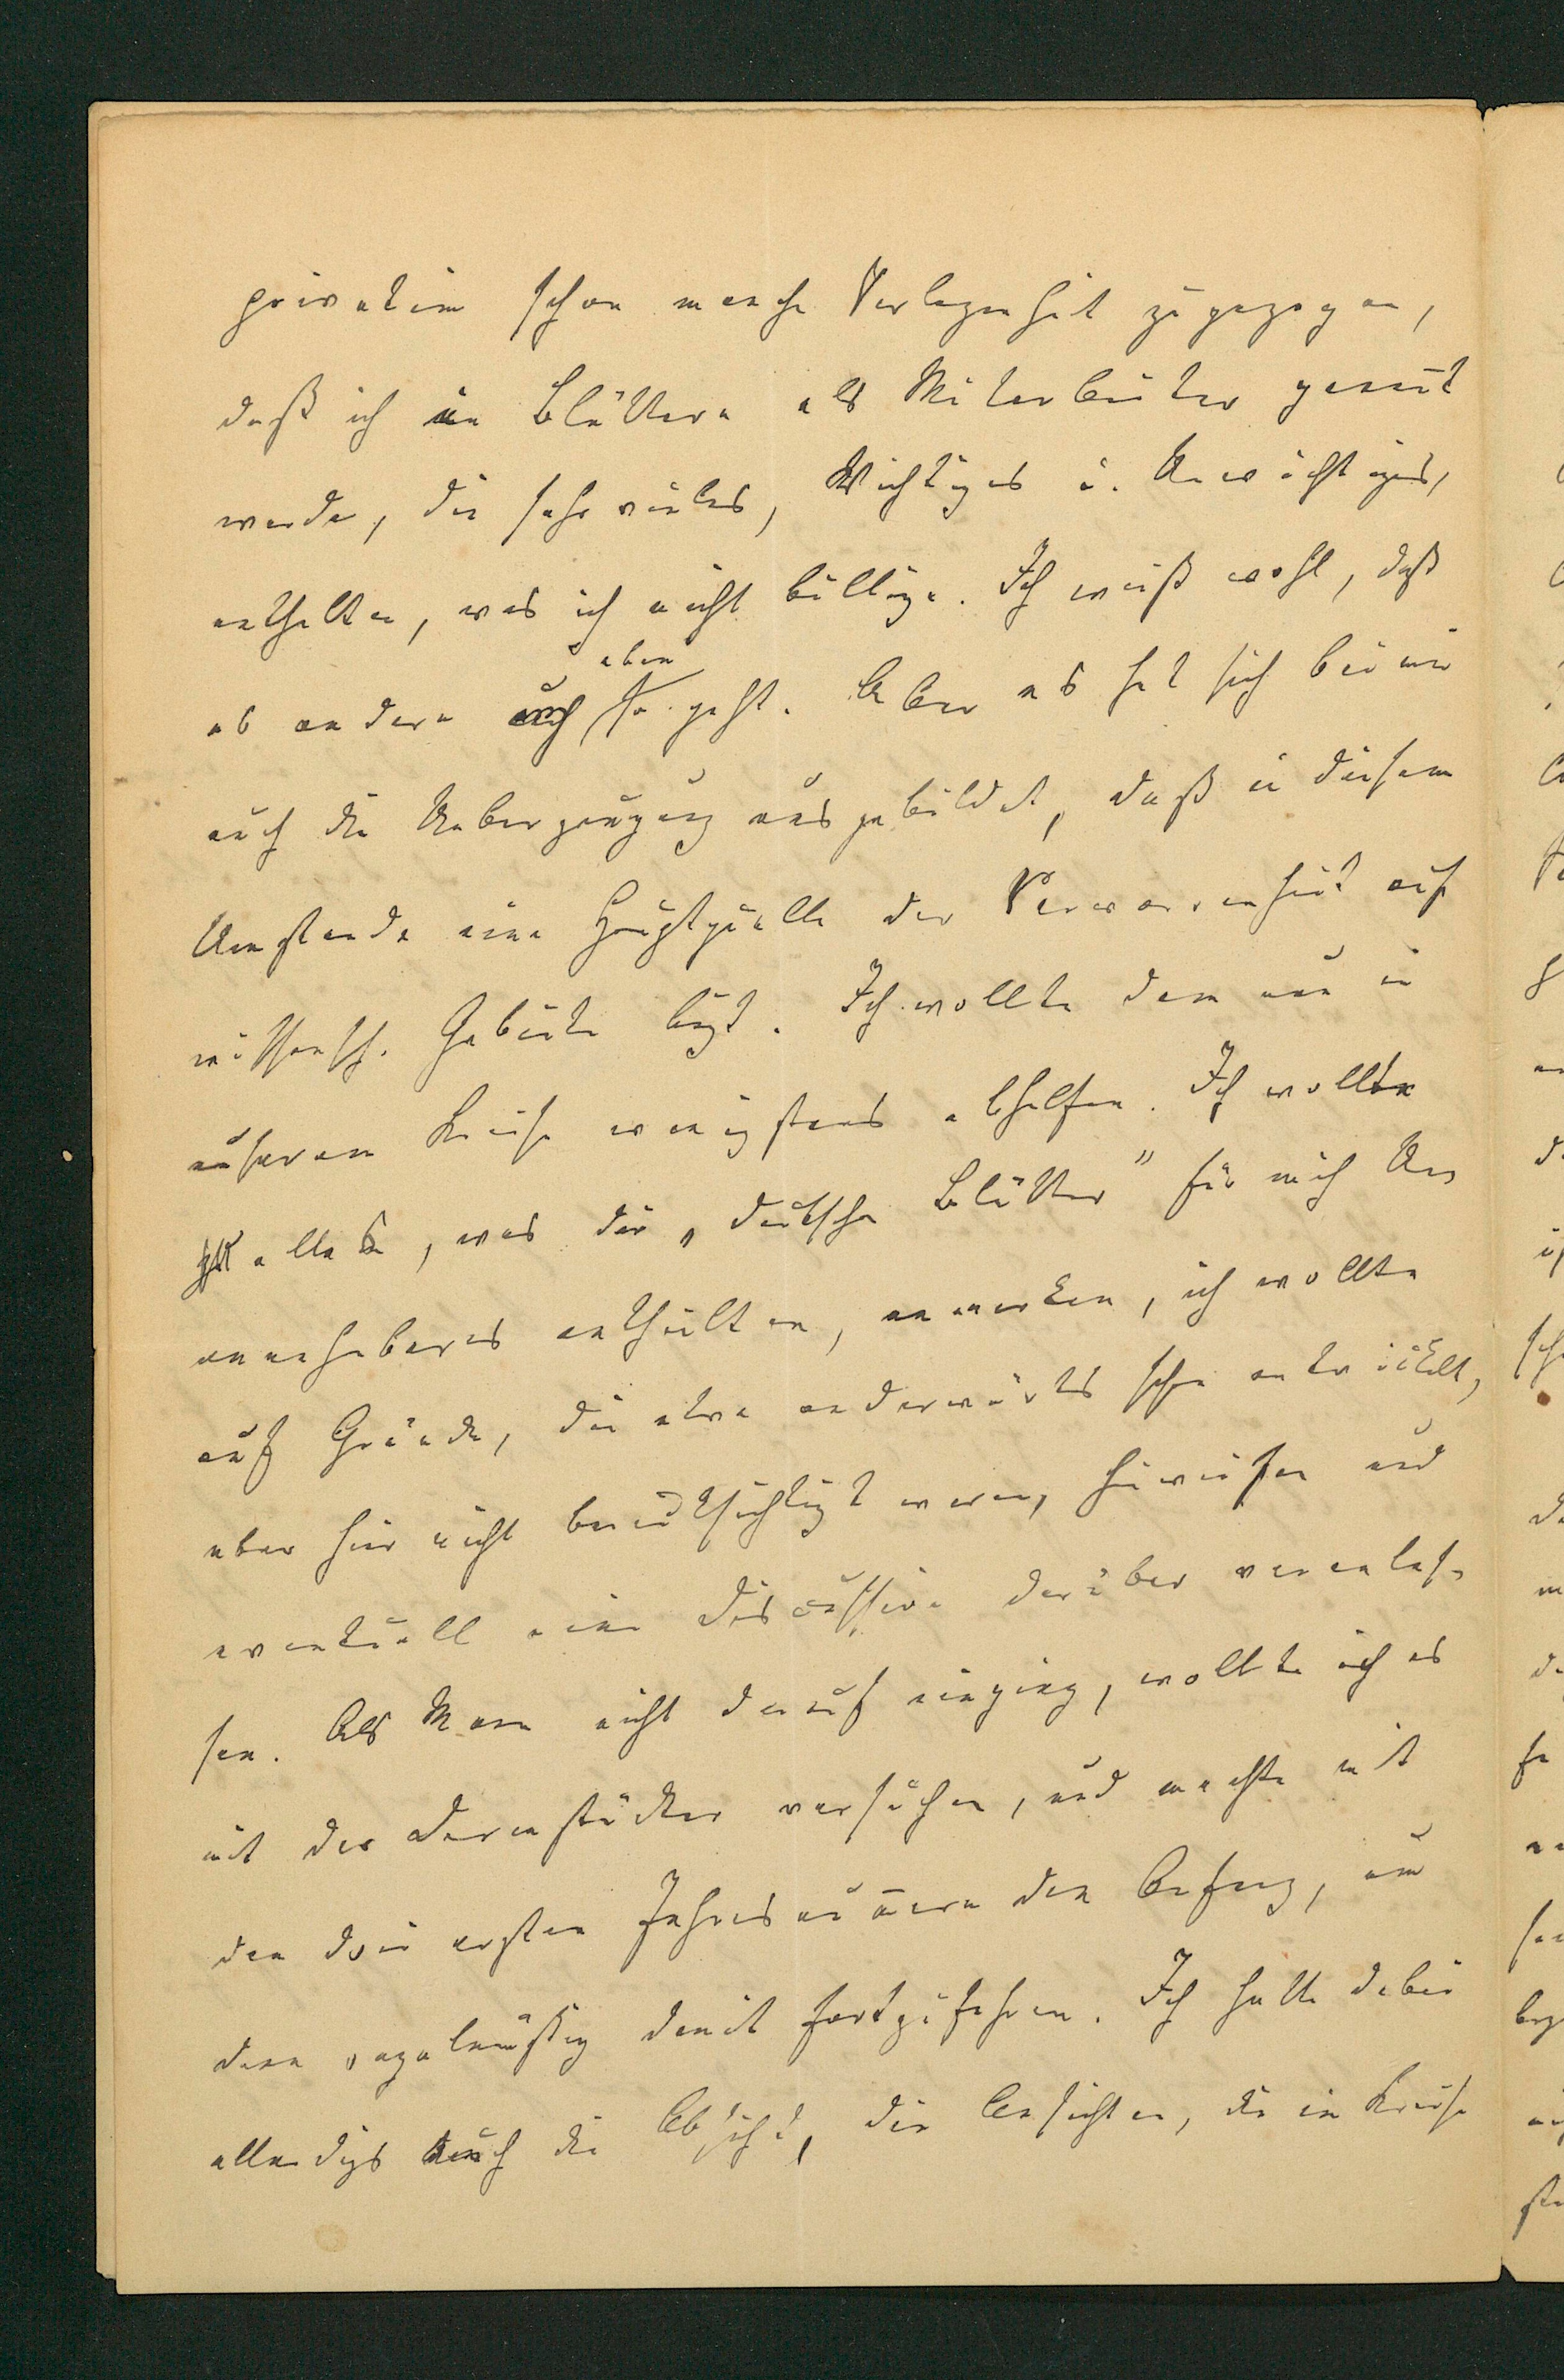 privatim schon manche Verlegenheit zugezogen,
daß ich in Blättern als Mitarbeiter genañt
werde, die sehr vieles, Wichtiges u. Unwichtiges,
enthalten, was ich nicht billige. Ich weiß wohl, daß
es andern auch eben so geht. Aber es hat sich bei mir
auch die Ueberzeugung ausgebildet, daß in diesem
Umstande eine Hauptquelle der Verworrenheit auf
wissensch. Gebiete liegt. Ich wollte dem nun in
unserem Kreise wenigstens abhelfen. Ich wollte
alles, was die „deutsche Blätter" für mich Un
annehmbares enthielten, anmerken, ich wollte
auf Gründe, die etwa anderwärts schon entwickelt,
aber hier nicht berücksichtigt waren, hinweisen und
eventuell eine Discussion darüber veranlas-
sen. Als Mann nicht darauf einging, wollte ich es
mit der Darmstädter versuchen, und machte mit
den drei ersten Jahresnum̄ern den Anfang, um
dann regelmäßig damit fortzufahren. Ich hatte dabei
allerdings auch die Absicht, die Ansichten, die im Kreise